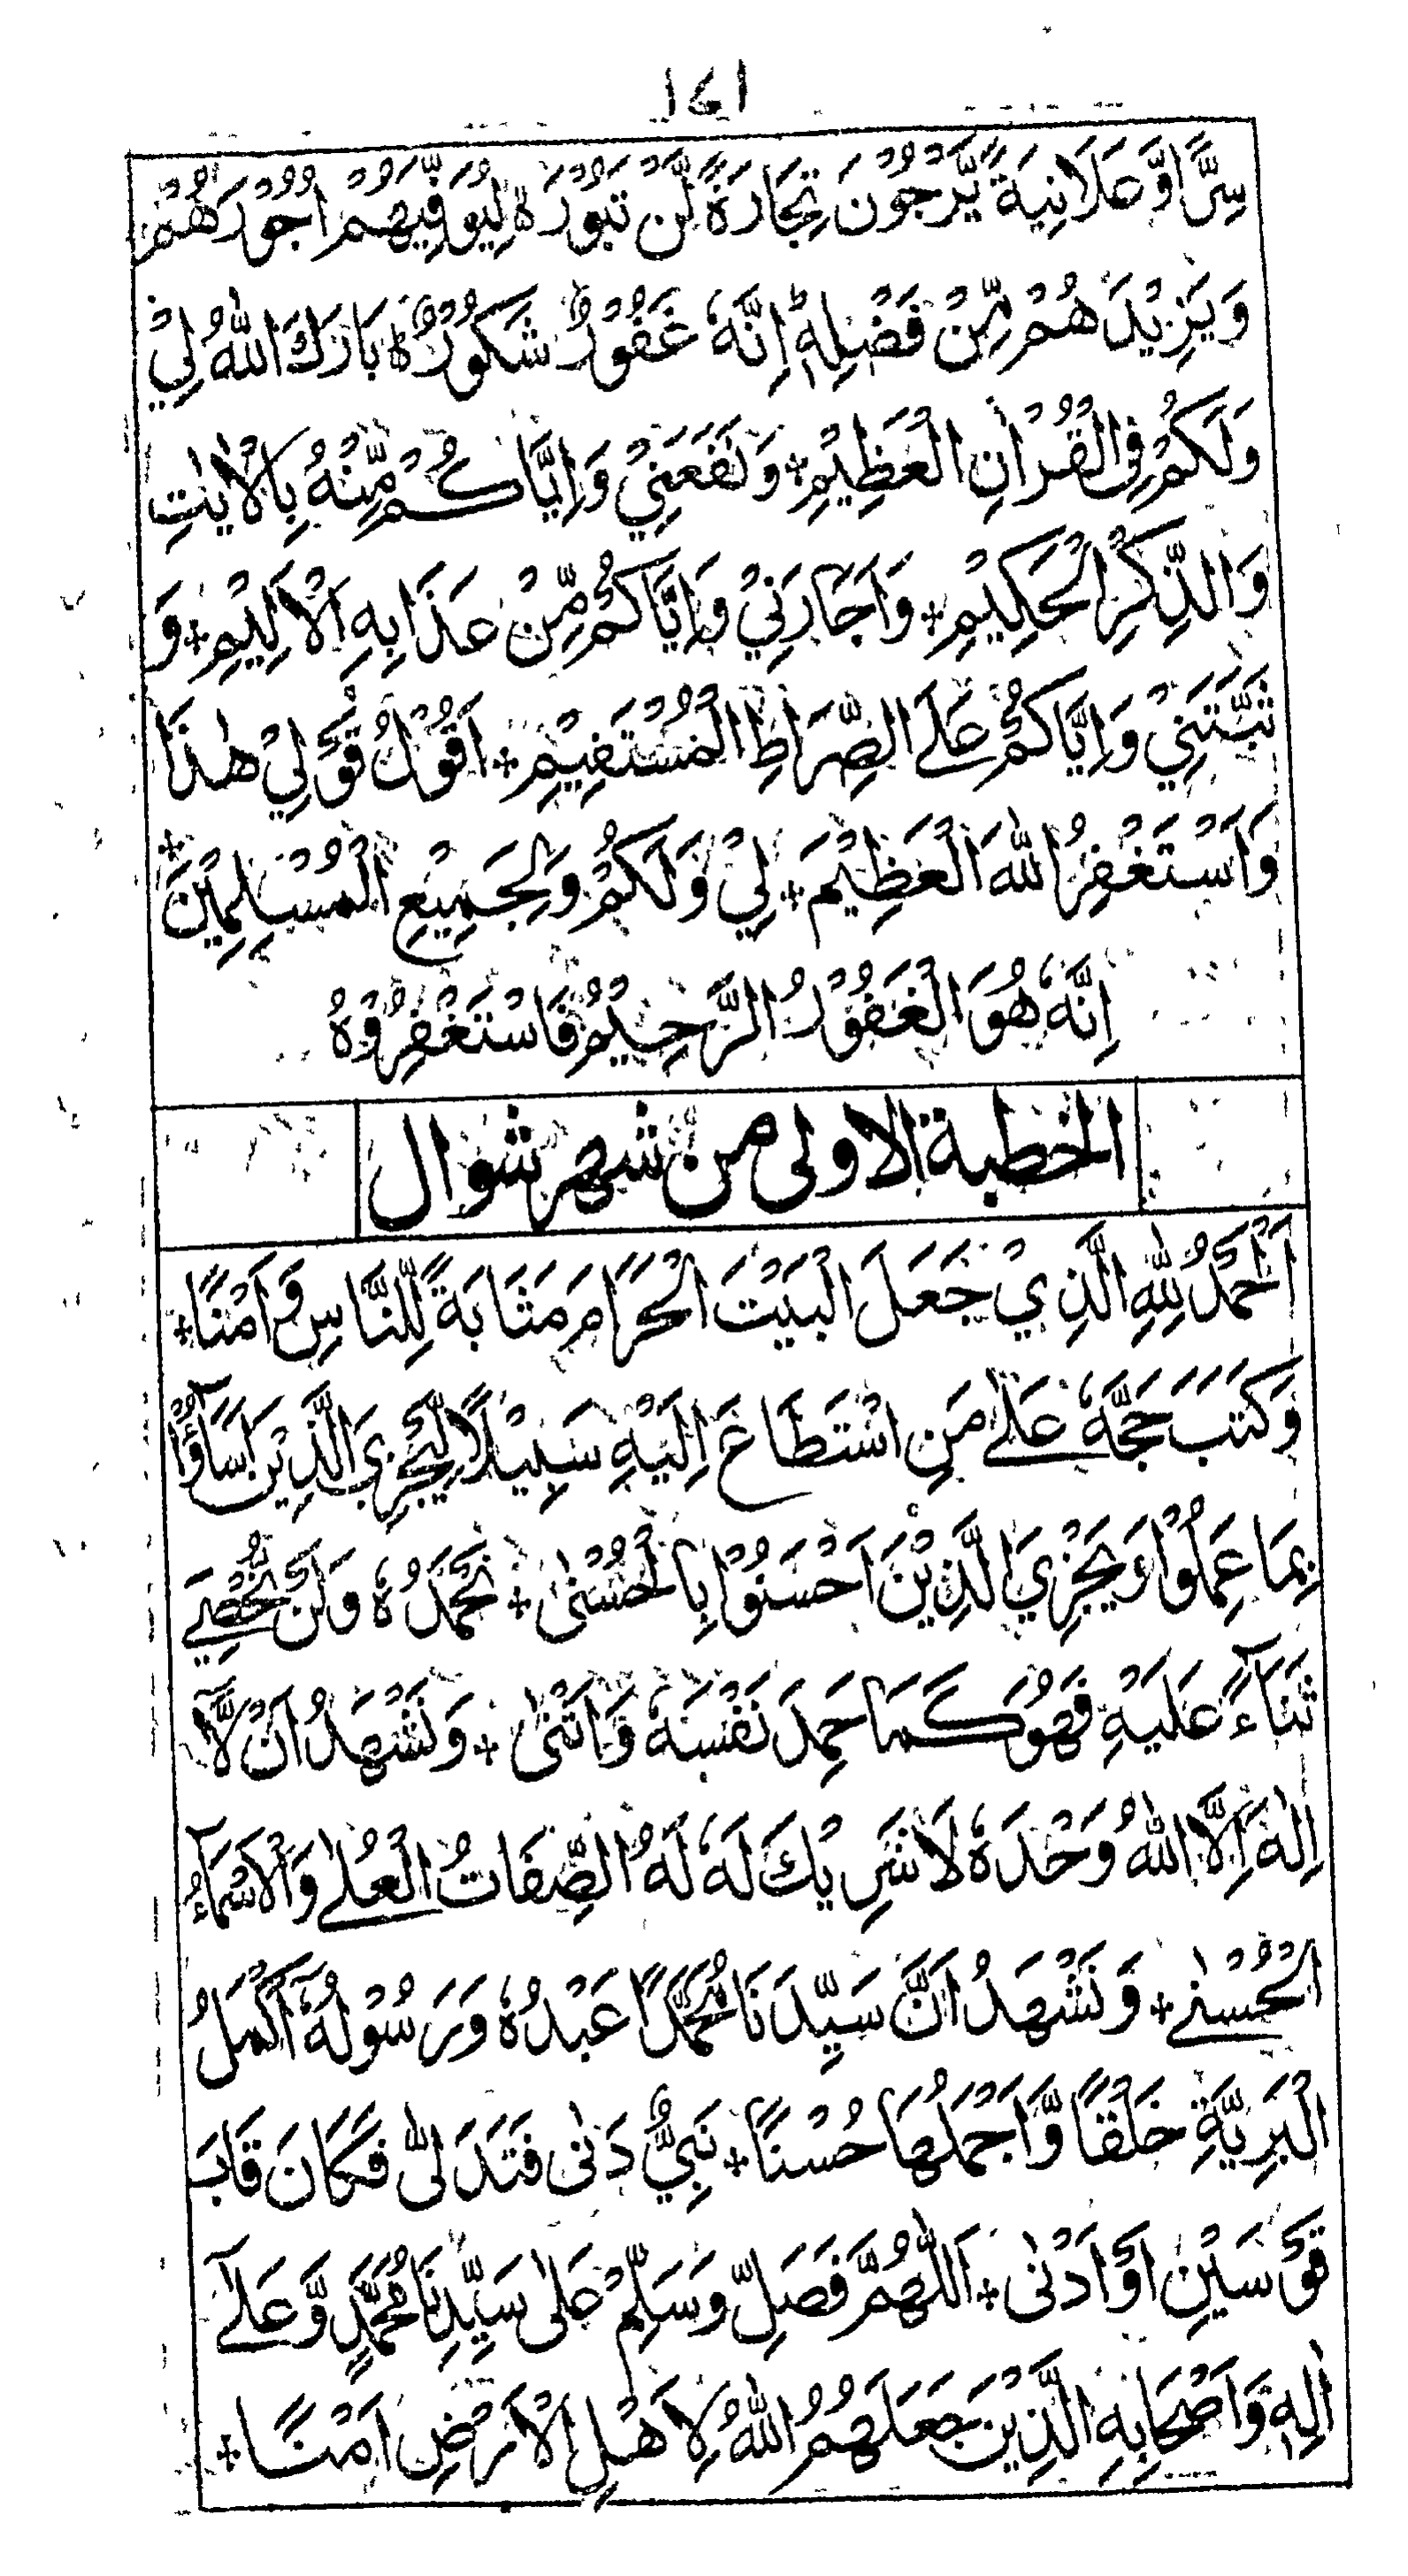 ١٤١
سِرًّا وَّعَلَانِيَةً يَّرْجُوْنَ تِجَارَةً لَّنْ تَبُوْرَ ۙ لِيُوَفِّيَهُمْ اُجُوْرَهُمْ
وَيَزِيْدَهُمْ مِّنْ فَضْلِهٖ ؕ اِنَّهٗ غَفُوْرٌ شَكُوْرٌ ۙ بَارَكَ اللّٰهُ لِيْ
وَلَكُمْ فِي الْقُرْاٰنِ الْعَظِيْمِ ÷ وَنَفَعَنِيْ وَاِيَّاكُمْ مِّنْهُ بِالْاٰيٰتِ
وَالذِّكْرِ الْحَكِيْمِ ÷ وَاَجَارَنِيْ وَاِيَّاكُمْ مِّنْ عَذَابِهِ الْاَلِيْمِ ÷ وَ
ثَبَّتَنِيْ وَاِيَّاكُمْ عَلَى الصِّرَاطِ الْمُسْتَقِيْمِ ÷ اَقُوْلُ قَوْلِيْ هٰذَا
وَاَسْتَغْفِرُ اللّٰهَ الْعَظِيْمَ ÷ لِيْ وَلَكُمْ وَلِجَمِيْعِ الْمُسْلِمِيْنَ ÷
اِنَّهٗ هُوَ الْغَفُوْرُ الرَّحِيْمُ فَاسْتَغْفِرُوْهُ
الخطبة الاولى من شهر شوال
اَلْحَمْدُ لِلّٰهِ الَّذِيْ جَعَلَ الْبَيْتَ الْحَرَامَ مَثَابَةً لِّلنَّاسِ وَاَمْنًا ÷
وَكَتَبَ حَجَّهٗ عَلٰى مَنِ اسْتَطَاعَ اِلَيْهِ سَبِيْلًا لِّيَجْزِيَ الَّذِيْنَ اَسَآؤُا
بِمَا عَمِلُوْا وَيَجْزِيَ الَّذِيْنَ اَحْسَنُوْا بِالْحُسْنٰى ÷ نَحْمَدُهٗ وَلَنْ نُّحْصِيَ
ثَنَآءً عَلَيْهِ فَهُوَ كَمَا حَمِدَ نَفْسَهٗ وَاَثْنٰى ÷ وَنَشْهَدُ اَنْ لَّا
اِلٰهَ اِلَّا اللّٰهُ وَحْدَهٗ لَا شَرِيْكَ لَهٗ لَهُ الصِّفَاتُ الْعُلٰى وَالْاَسْمَآءُ
الْحُسْنٰى ÷ وَنَشْهَدُ اَنَّ سَيِّدَنَا مُحَمَّدًا عَبْدُهٗ وَرَسُوْلُهٗٓ اَكْمَلُ
الْبَرِيَّةِ خَلْقًا وَّاَجْمَلُهَا حُسْنًا ÷ نَبِيٌّ دَنٰى فَتَدَلّٰى فَكَانَ قَابَ
قَوْسَيْنِ اَوْ اَدْنٰى ÷ اَللّٰهُمَّ فَصَلِّ وَسَلِّمْ عَلٰى سَيِّدِنَا مُحَمَّدٍ وَّعَلٰٓى
اٰلِهٖ وَاَصْحَابِهِ الَّذِيْنَ جَعَلَهُمُ اللّٰهُ لِاَهْلِ الْاَرْضِ اَمْنًا ÷